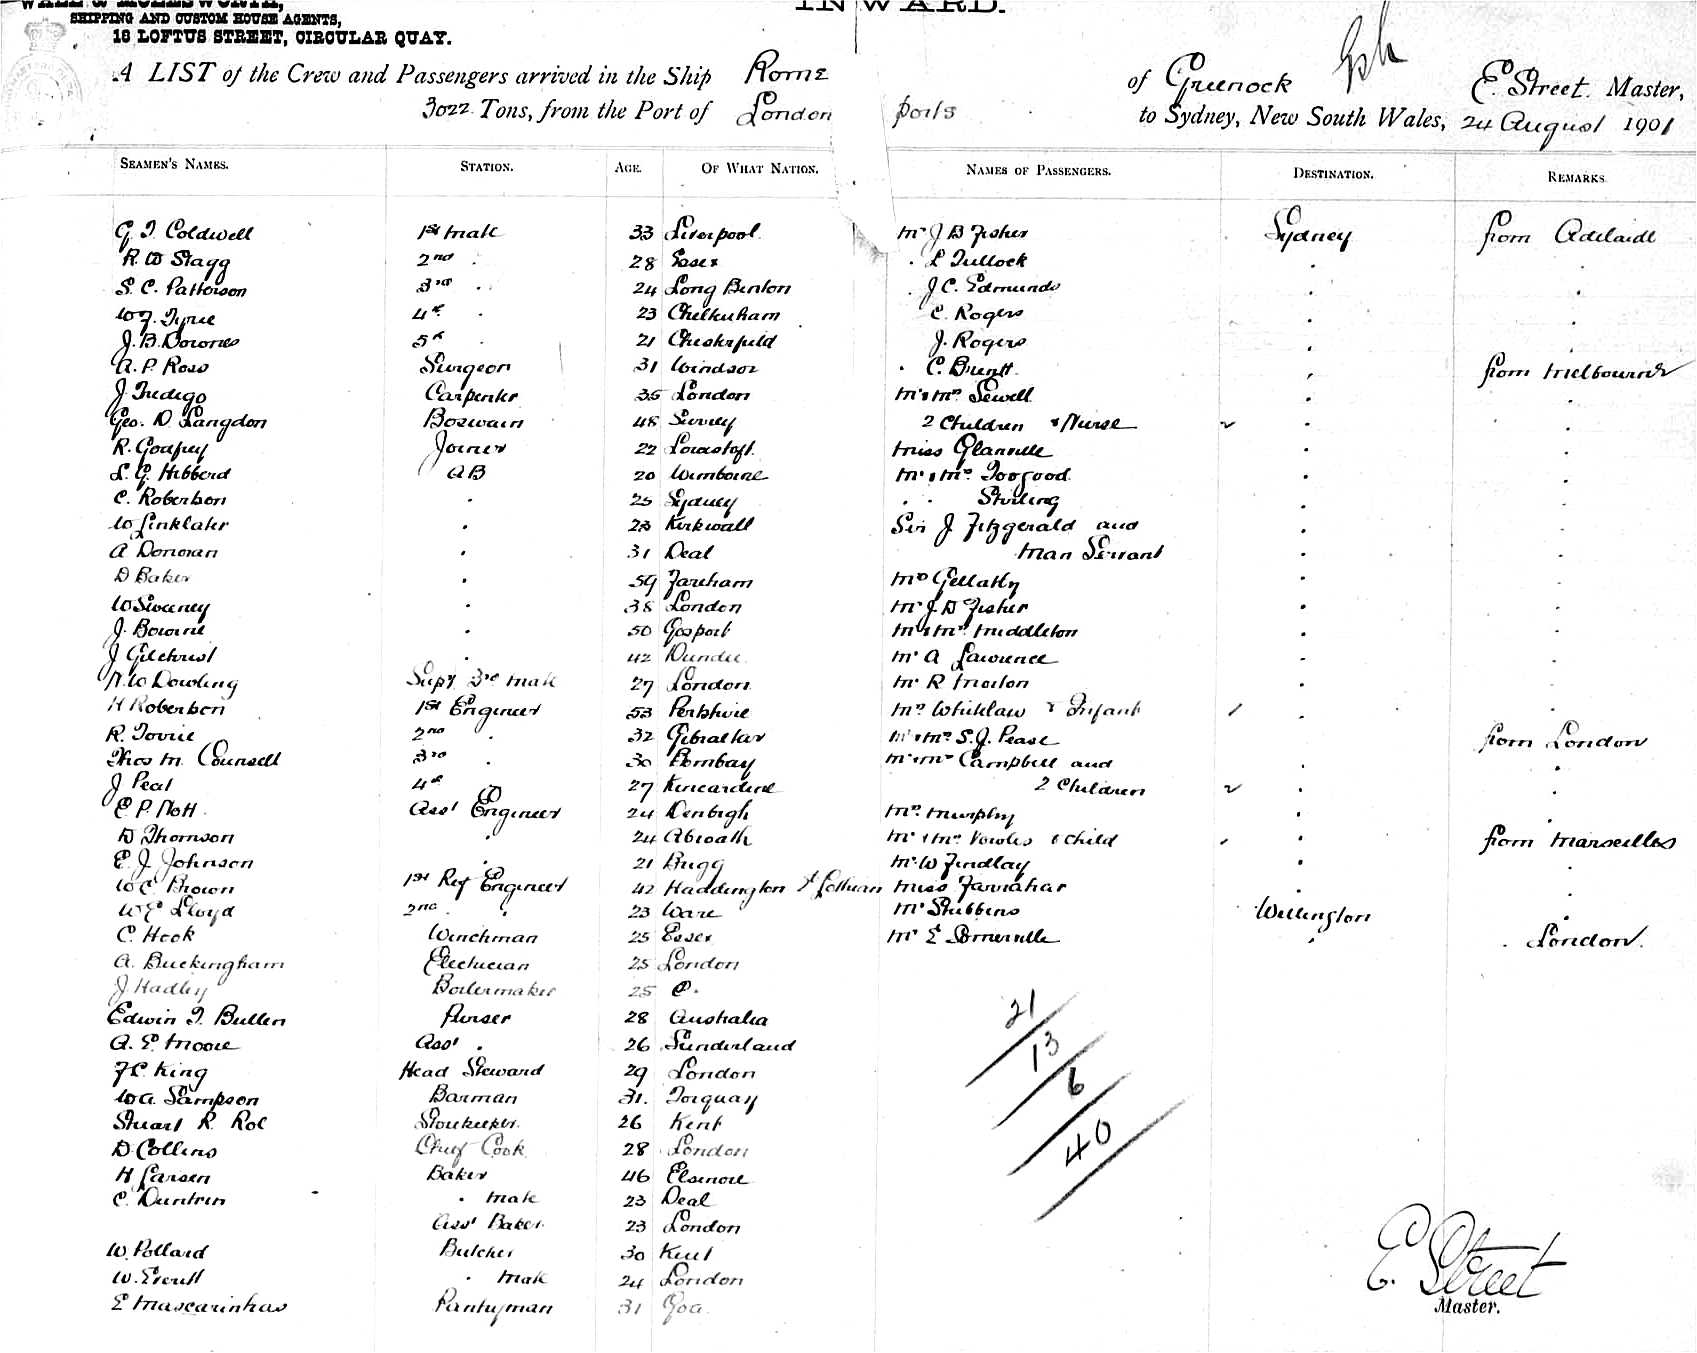 SHIPPING AND CUSTOM HOUSE AGENTS,
18 LOFTUS STREET, CIRCULAR QUAY.
INWARD.
A LIST of the Crew and Passengers arrived in the Ship Rome of Greenock E. Street. Master,
3022 Tons, from the Port of London ports to Sydney, New South Wales, 24 August 1901
SEAMEN'S NAMES. STATION. AGE. OF WHAT NATION. NAMES OF PASSENGERS. DESTINATION. REMARKS
G T Coldwell 1st mate 33 Liverpool. Mr J B Fisher Sydney from Adelaide
R. W Stagg 2nd . 28 Essex . L Tullock . .
S. C. Patterson 3rd . 24 Long Benton . J C. Edmunds . .
W J. Tyrie 4th . 23 Cheltenham C. Rogers . .
J. B. Downes 5th . 21 Chesterfield J. Rogers . .
A. P. Ross Surgeon 31 Windsor . C. Brentt. . from Melbourne
J. Tredigo Carpenter 35 London Mr & Mrs Sewell . .
Geo. D. Langdon Boswain 48 Surrey 2 Children & Nurse 2 . .
R. Godfrey Joiner 22 Lowestoft. Miss Glanville . .
L. G. Hibberd AB 20 Wimborne Mr & Mrs Toogood . .
C. Robertson . 25 Sydney . . Stirling . .
W Linklater . 23 Kirkwall Sir J Fitzgerald and . .
A Donovan . 31 Deal Man Servant . .
D Baker . 59 Fareham Mrs Gellatly . .
W Sweeney . 38 London Mr J. B Fisher . .
J. Bowrie . 50 Gosport Mr & Mrs Middleton . .
J Gilchrist . 42 Dundee Mr A Lawrence . .
N. W Dowling Supy 3rd mate 27 London Mr R Morton . .
H Robertson 1st Engineer 53 Perthshire Mrs Whitelaw & Infant 1 . .
R. Tovrie 2nd . 32 Gibraltar Mr & Mrs S. J. Pease . from London
Thos M. Counsell 3rd . 30 Bombay Mr & Mrs Campbell and . .
J Peat 4th . 27 Kincardine 2 Children 2 . .
E P. Nott Asst Engineer 24 Denbigh Mrs Murphy . .
D Thomson . 24 Abroath Mr & Mrs Vowles & child . from Marseilles
E. J Johnson . 21 Brigg Mr W Findlay . .
W C Brown 1st Ref Engineer 42 Haddington Miss Farrahar . .
W E Lloyd 2nd . . 23 Ware Mr Stubbins Wellington .
C. Hook Winchman 25 Essex Mr E Somerville . . London.
A. Buckingham Electrician 25 London
J. Hadley Boilermaker 25
Edwin T. Bullen Purser 28 Australia
A. E. Moore Asst . 26 Sunderland
F C. King Head Steward 29 London
W A. Sampson Barman 31. Torquay
Stuart R. Roe Storekeeper. 26 Kent
D. Collins Chief Cook 28 London
H Larsen Baker 46 Elsinore
C. Duntrin . mate 23 Deal
Asst Baker 23 London
W. Pollard Butcher 30 Kent
W. Everitt . mate 24 London
E Mascarinhas Pantryman 31 Goa.
21
13
6
40
E. Street
Master.